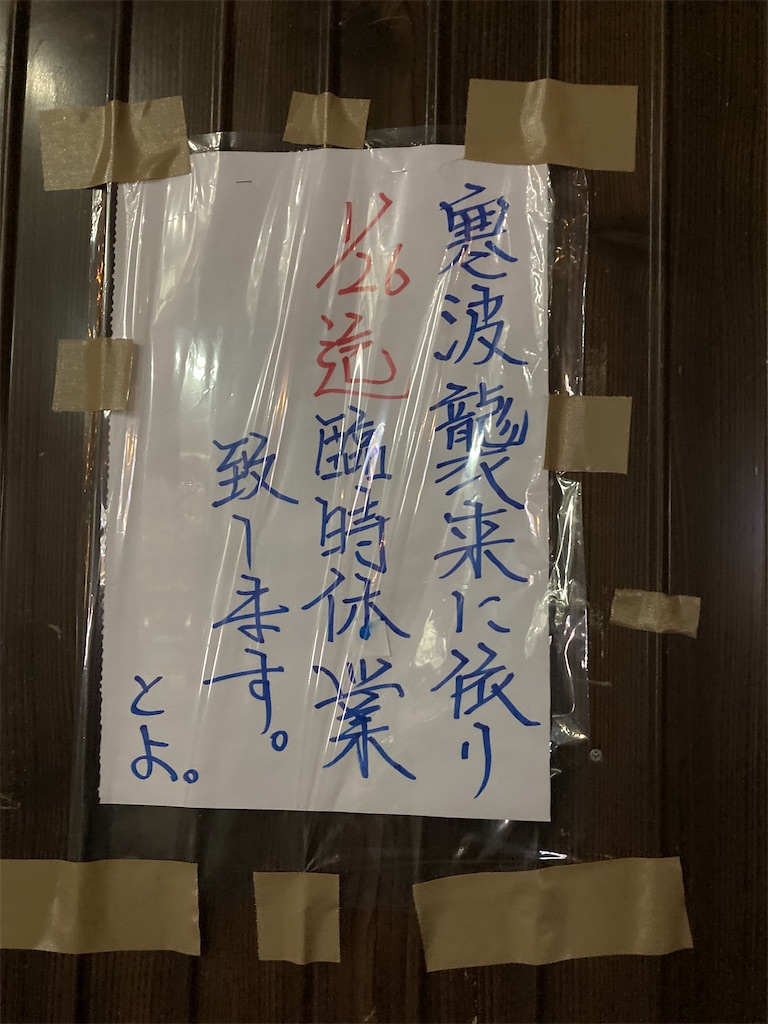 寒波襲来に依り
1/26迄臨時休業
致します。
とよ。